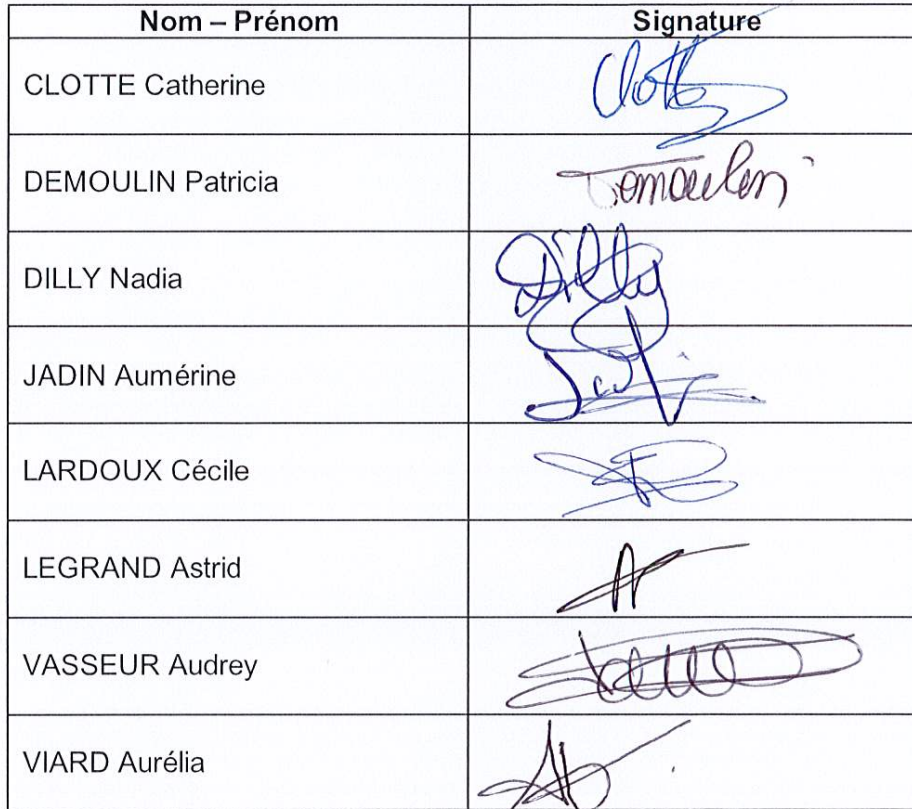 Nom – Prénom Signature
CLOTTE Catherine Clotte
DEMOULIN Patricia Demoulin
DILLY Nadia Dilly
JADIN Aumérine
LARDOUX Cécile
LEGRAND Astrid
VASSEUR Audrey
VIARD Aurélia